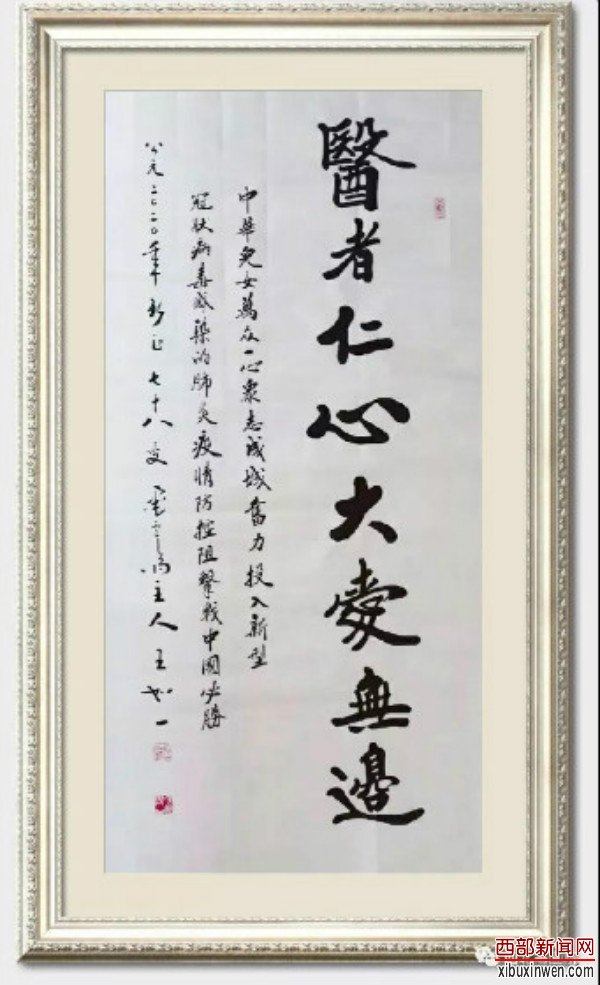 醫者仁心大愛無邊
中華兒女萬众一心眾志成城奮力投入新型
冠狀病毒感染的肺炎疫情防控阻擊戰中國必勝
公元二〇二〇年新正七十八叟主人王如一
西部新闻网
xibuxinwen.com